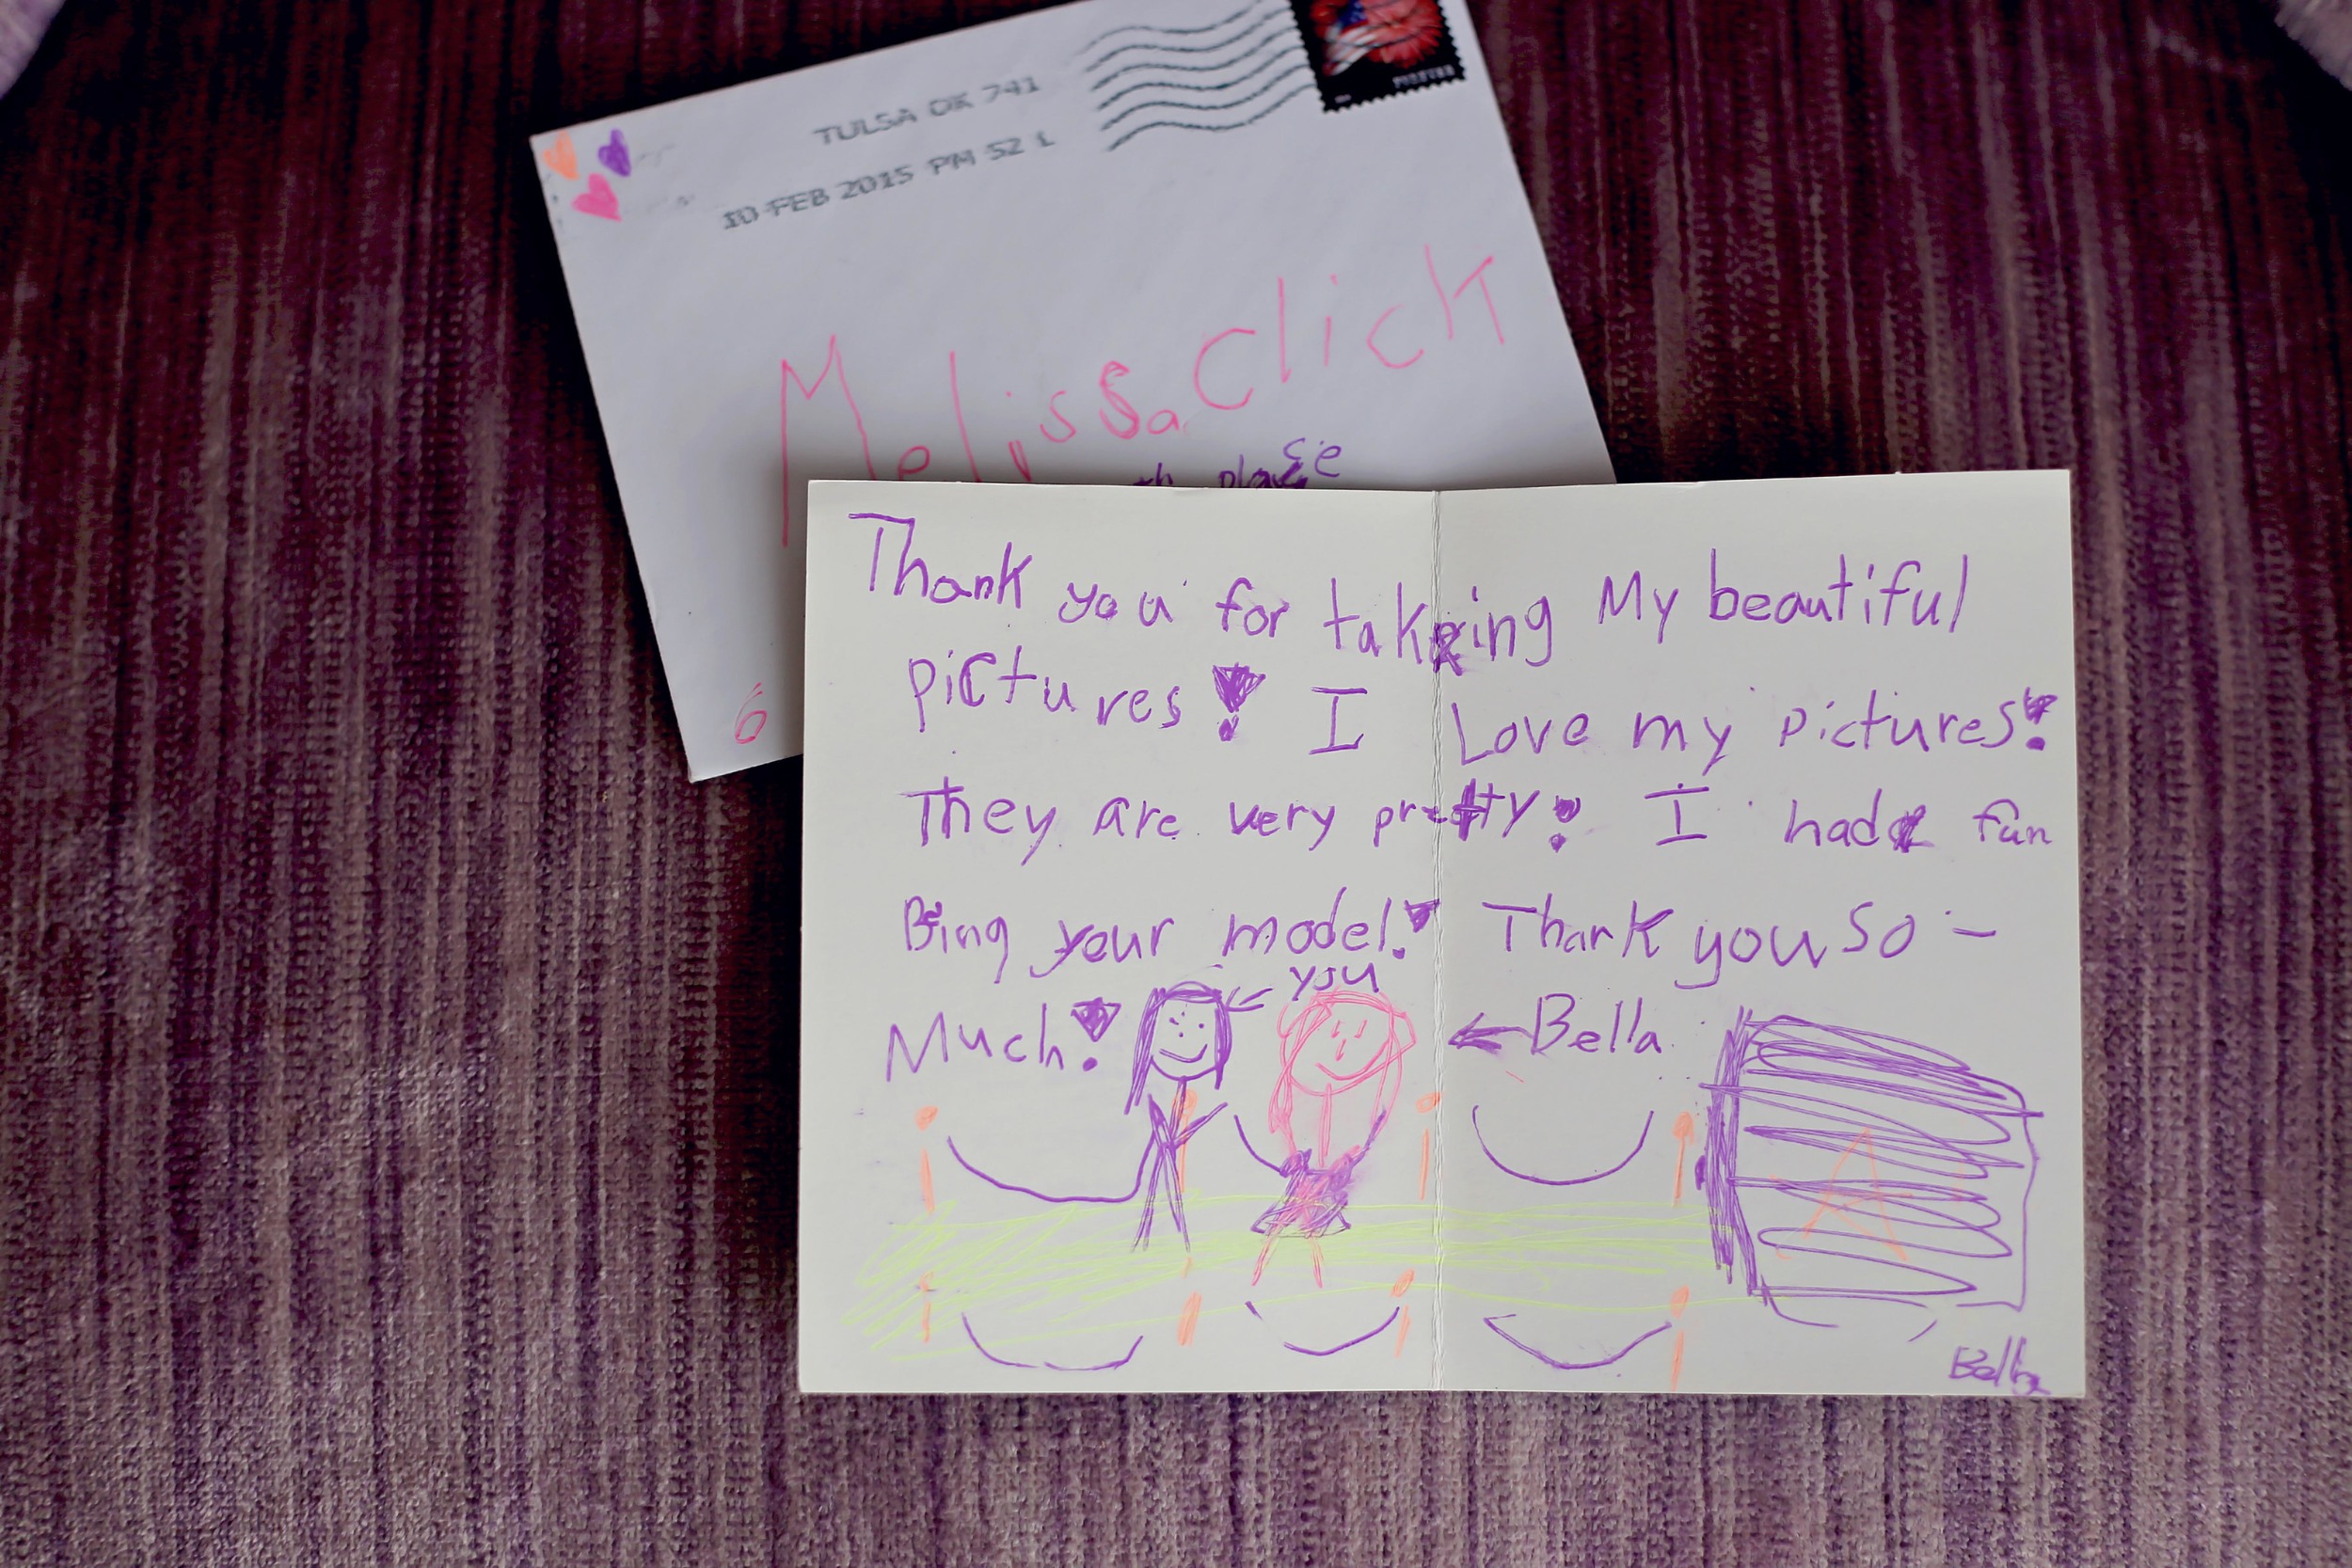 TULSA OK 741
10 FEB 2015 PM 52 L
FOREVER
Melissa Click
th place
6
Thank you for taking My beautiful
pictures! I Love my pictures!
They are very pretty! I had fun
Bing your model! Thank you so -
Much!
you
Bella
Bella